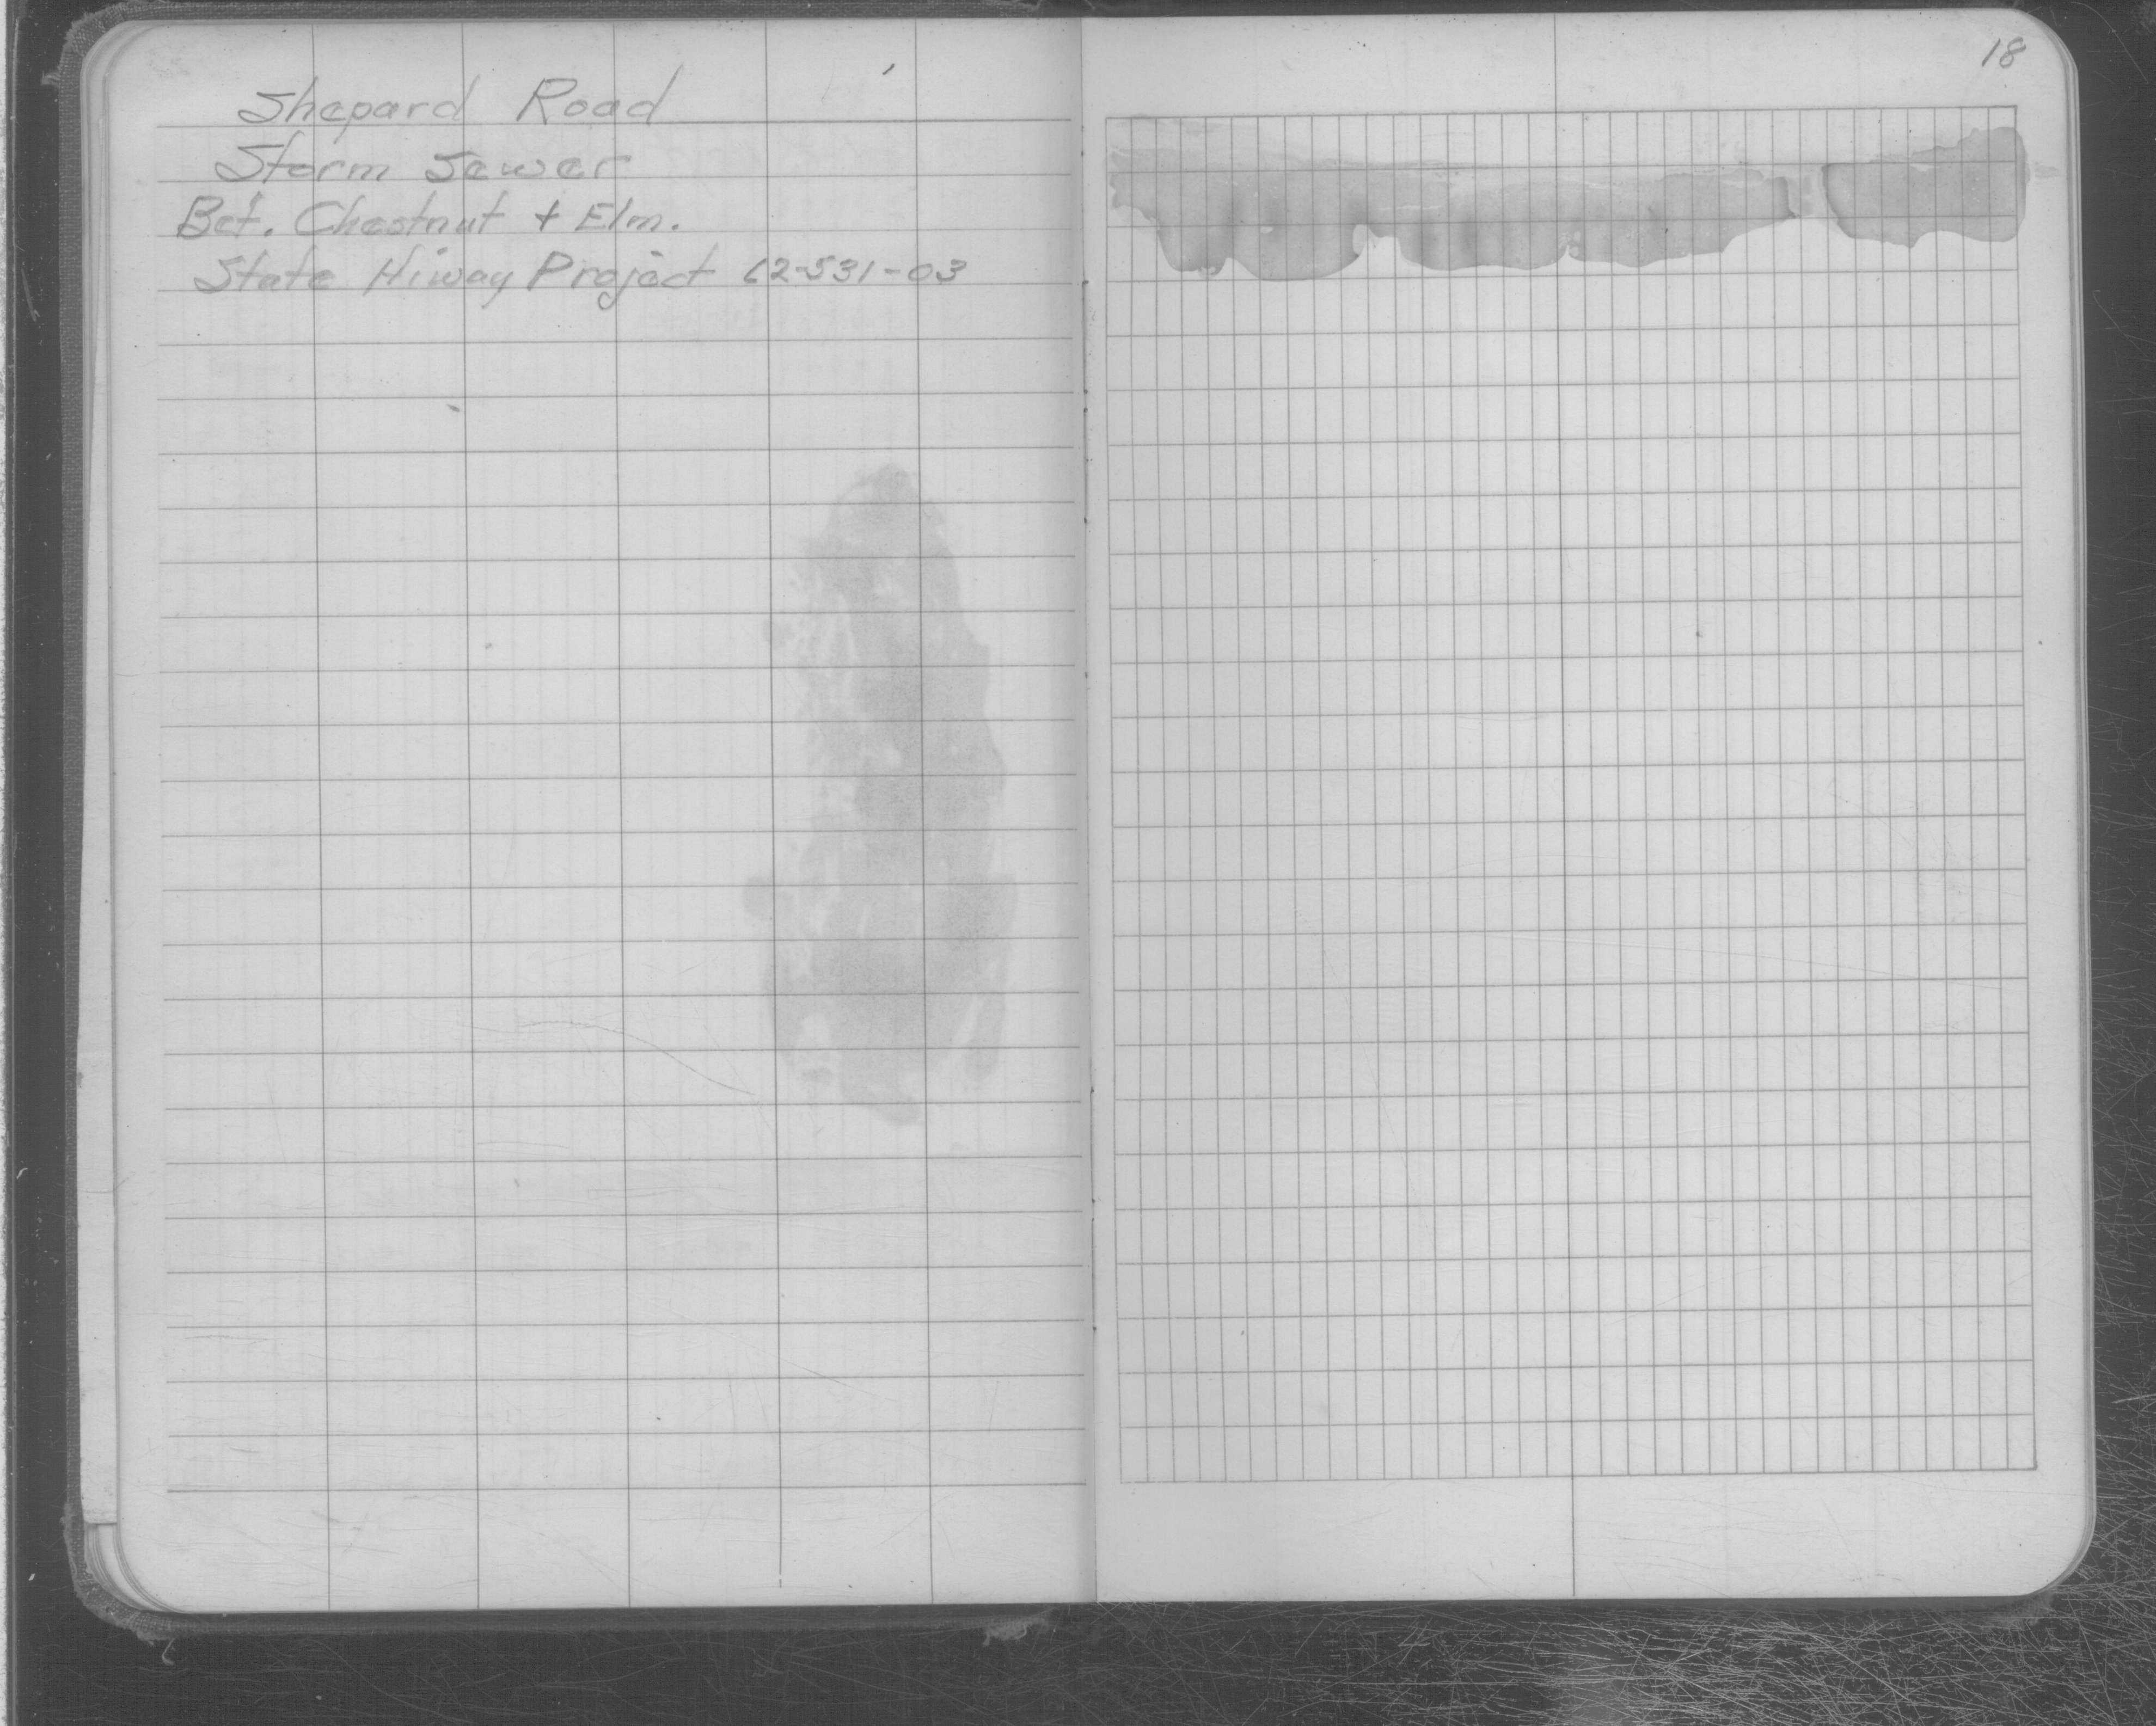 Shepard Road
Storm Sewer
Bet. Chestnut + Elm.
State Hiway Project 62-531-03
18